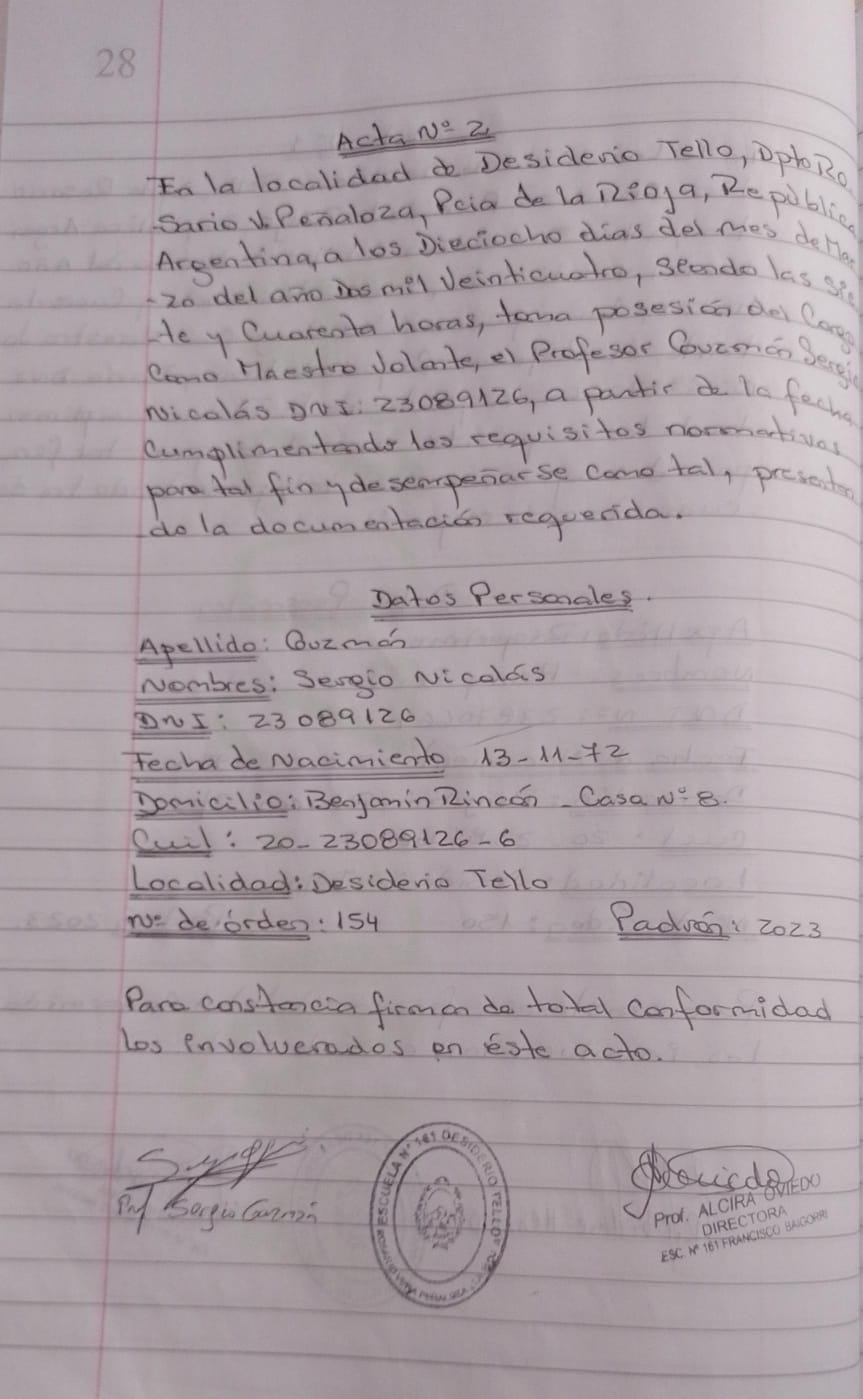 28
Acta Nº 2
En la localidad de Desiderio Tello, Dpto Ro
sario V. Peñaloza, Pcia de la Rioja, República
Argentina, a los Dieciocho días del mes de Mar
-zo del año Dos mil Veinticuatro, siendo las sie
-te y Cuarenta horas, toma posesión del Cargo
Como Maestro Volante, el Profesor Guzmán Sergio
Nicolás DNI: 23089126, a partir de la fecha
Cumplimentando los requisitos normativos
para tal fin y desempeñarse como tal, presentan
do la documentación requerida.
Datos Personales.
Apellido: Guzmán
Nombres: Sergio Nicolás
DNI: 23089126
Fecha de Nacimiento 13-11-72
Domicilio: Benjamín Rincón - Casa Nº 8.
Cuil: 20-23089126-6
Localidad: Desiderio Tello
Nº de órden: 154 Padrón: 2023
Para constancia firman de total conformidad
los involucrados en éste acto.
Prof Sergio Guzmán
ESCUELA Nº 161 DESIDERIO TELLO
Prof. ALCIRA OVIEDO
DIRECTORA
ESC. Nº 161 FRANCISCO BAIGORRI